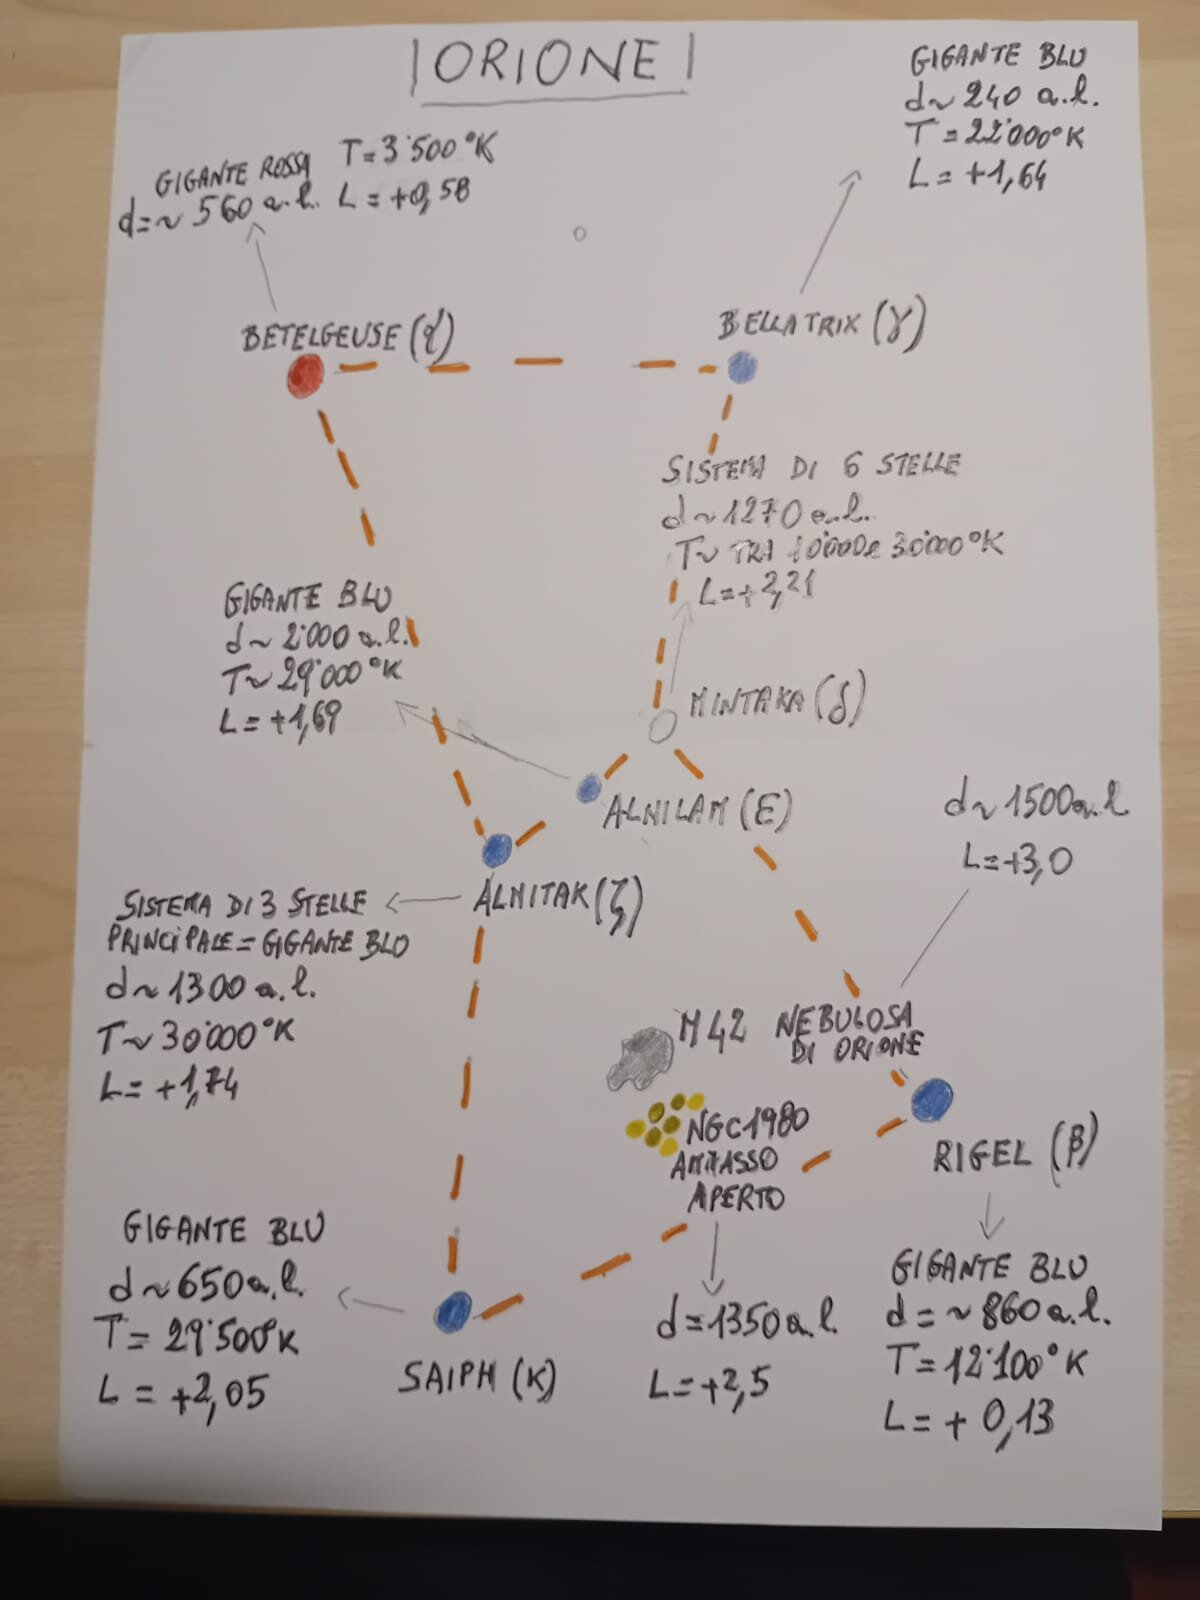 |ORIONE|
GIGANTE BLU
d~240 a.l.
T=22'000°K
L=+1,64
GIGANTE ROSSA T=3'500°K
d=~560 a.l. L=+0,58
BETELGEUSE (α)
BELLATRIX (γ)
SISTEMA DI 6 STELLE
d~1270 a.l.
T~ TRA 10'000 e 30'000°K
L=+2,21
GIGANTE BLU
d~2'000 a.l.
T~29'000°K
L=+1,69
MINTAKA (δ)
ALNILAM (E)
d~1500 a.l
L=+3,0
ALNITAK (ζ)
SISTEMA DI 3 STELLE
PRINCIPALE=GIGANTE BLO
d~1300 a.l.
T~30'000°K
L=+1,74
M42 NEBULOSA
DI ORIONE
NGC1980
AMMASSO
APERTO
d=1350 a.l.
L=+2,5
RIGEL (β)
GIGANTE BLU
d=~860 a.l.
T=12'100°K
L=+0,13
GIGANTE BLU
d~650 a.l.
T=29'500°K
L=+2,05
SAIPH (K)